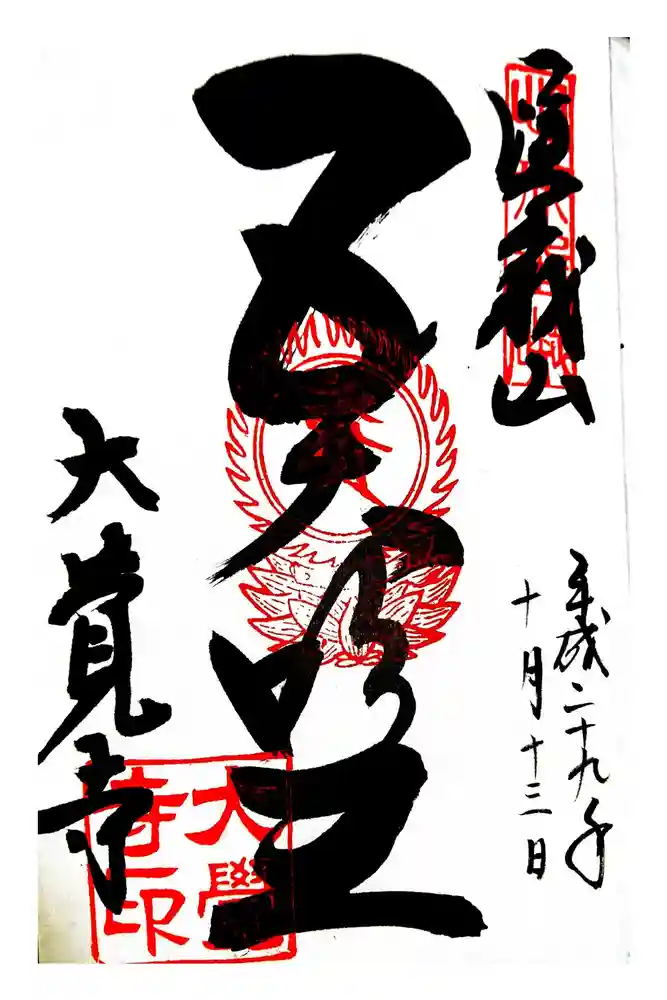 嵯峨山
平成二十九年
十月十三日
五大明王
大覚寺
大覺
寺印